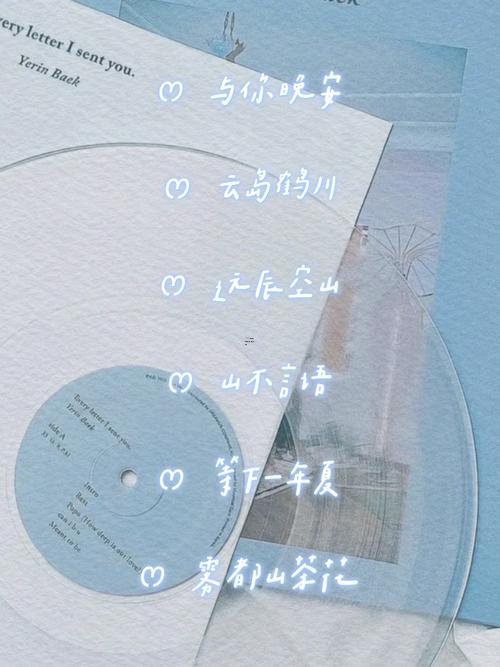 every letter I sent you.
Yerin Baek
♡ 与你晚安
♡ 云岛鹤川
♡ 远辰空山
♡ 山不言语
♡ 等下一年夏
♡ 雾都山茶花
Every letter I sent you.
Yerin Baek
side A
Intro
Rest
Popo (How deep is our love)
Meant to be